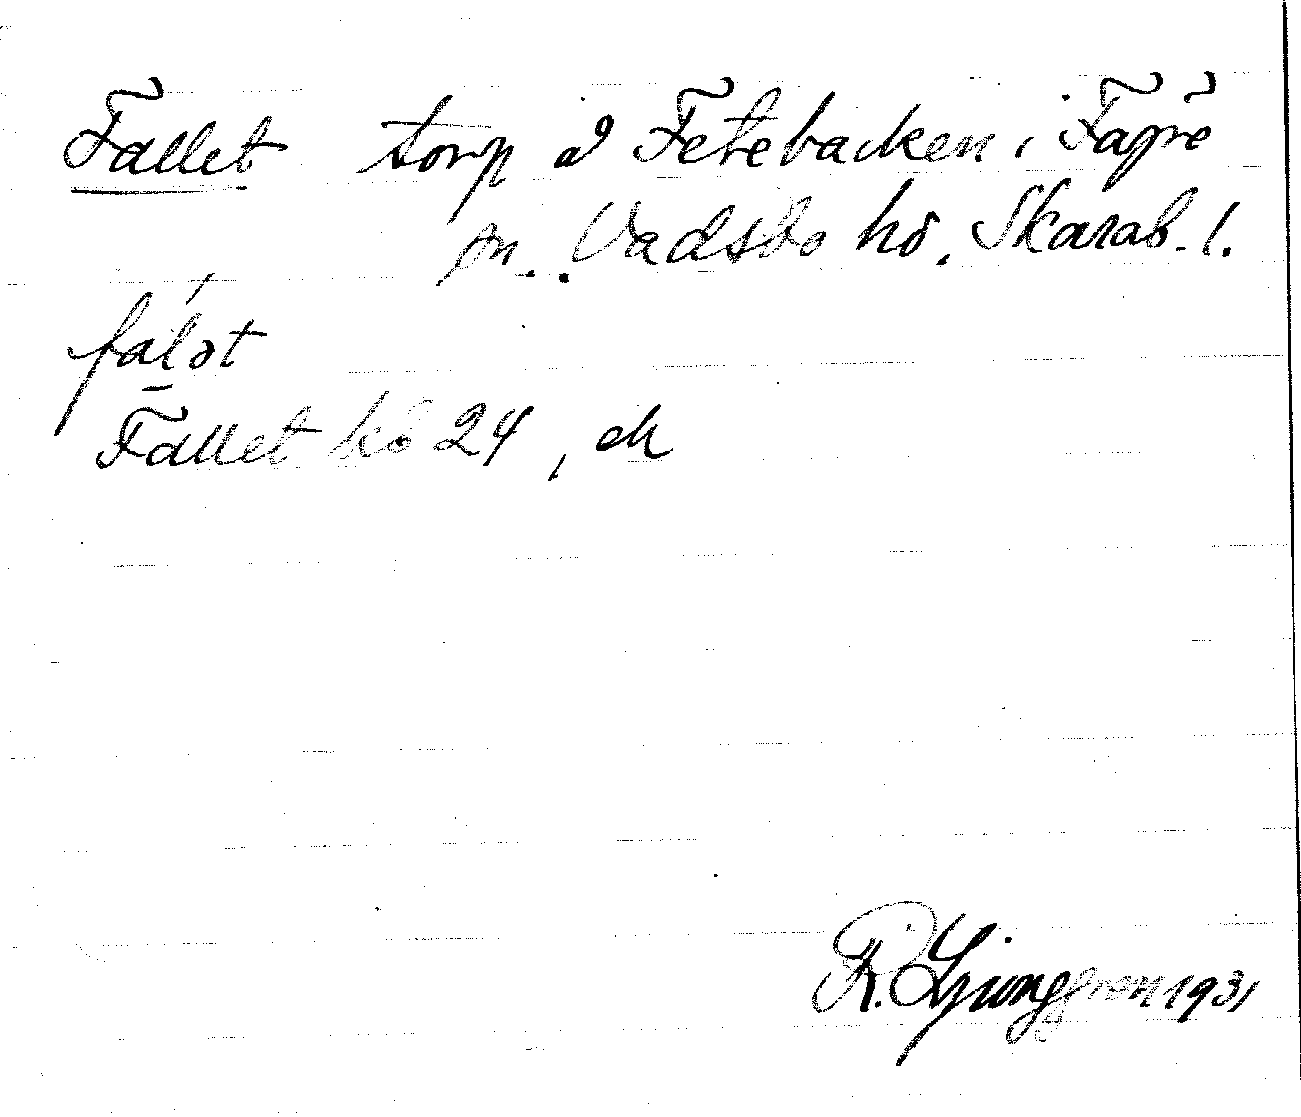 Fallet torp å Fetebacken i Fägre
sn. Vadsbo hd. Skarab. l.
fálət
Fallet kb 24, ek
R. Ljunggren 1931